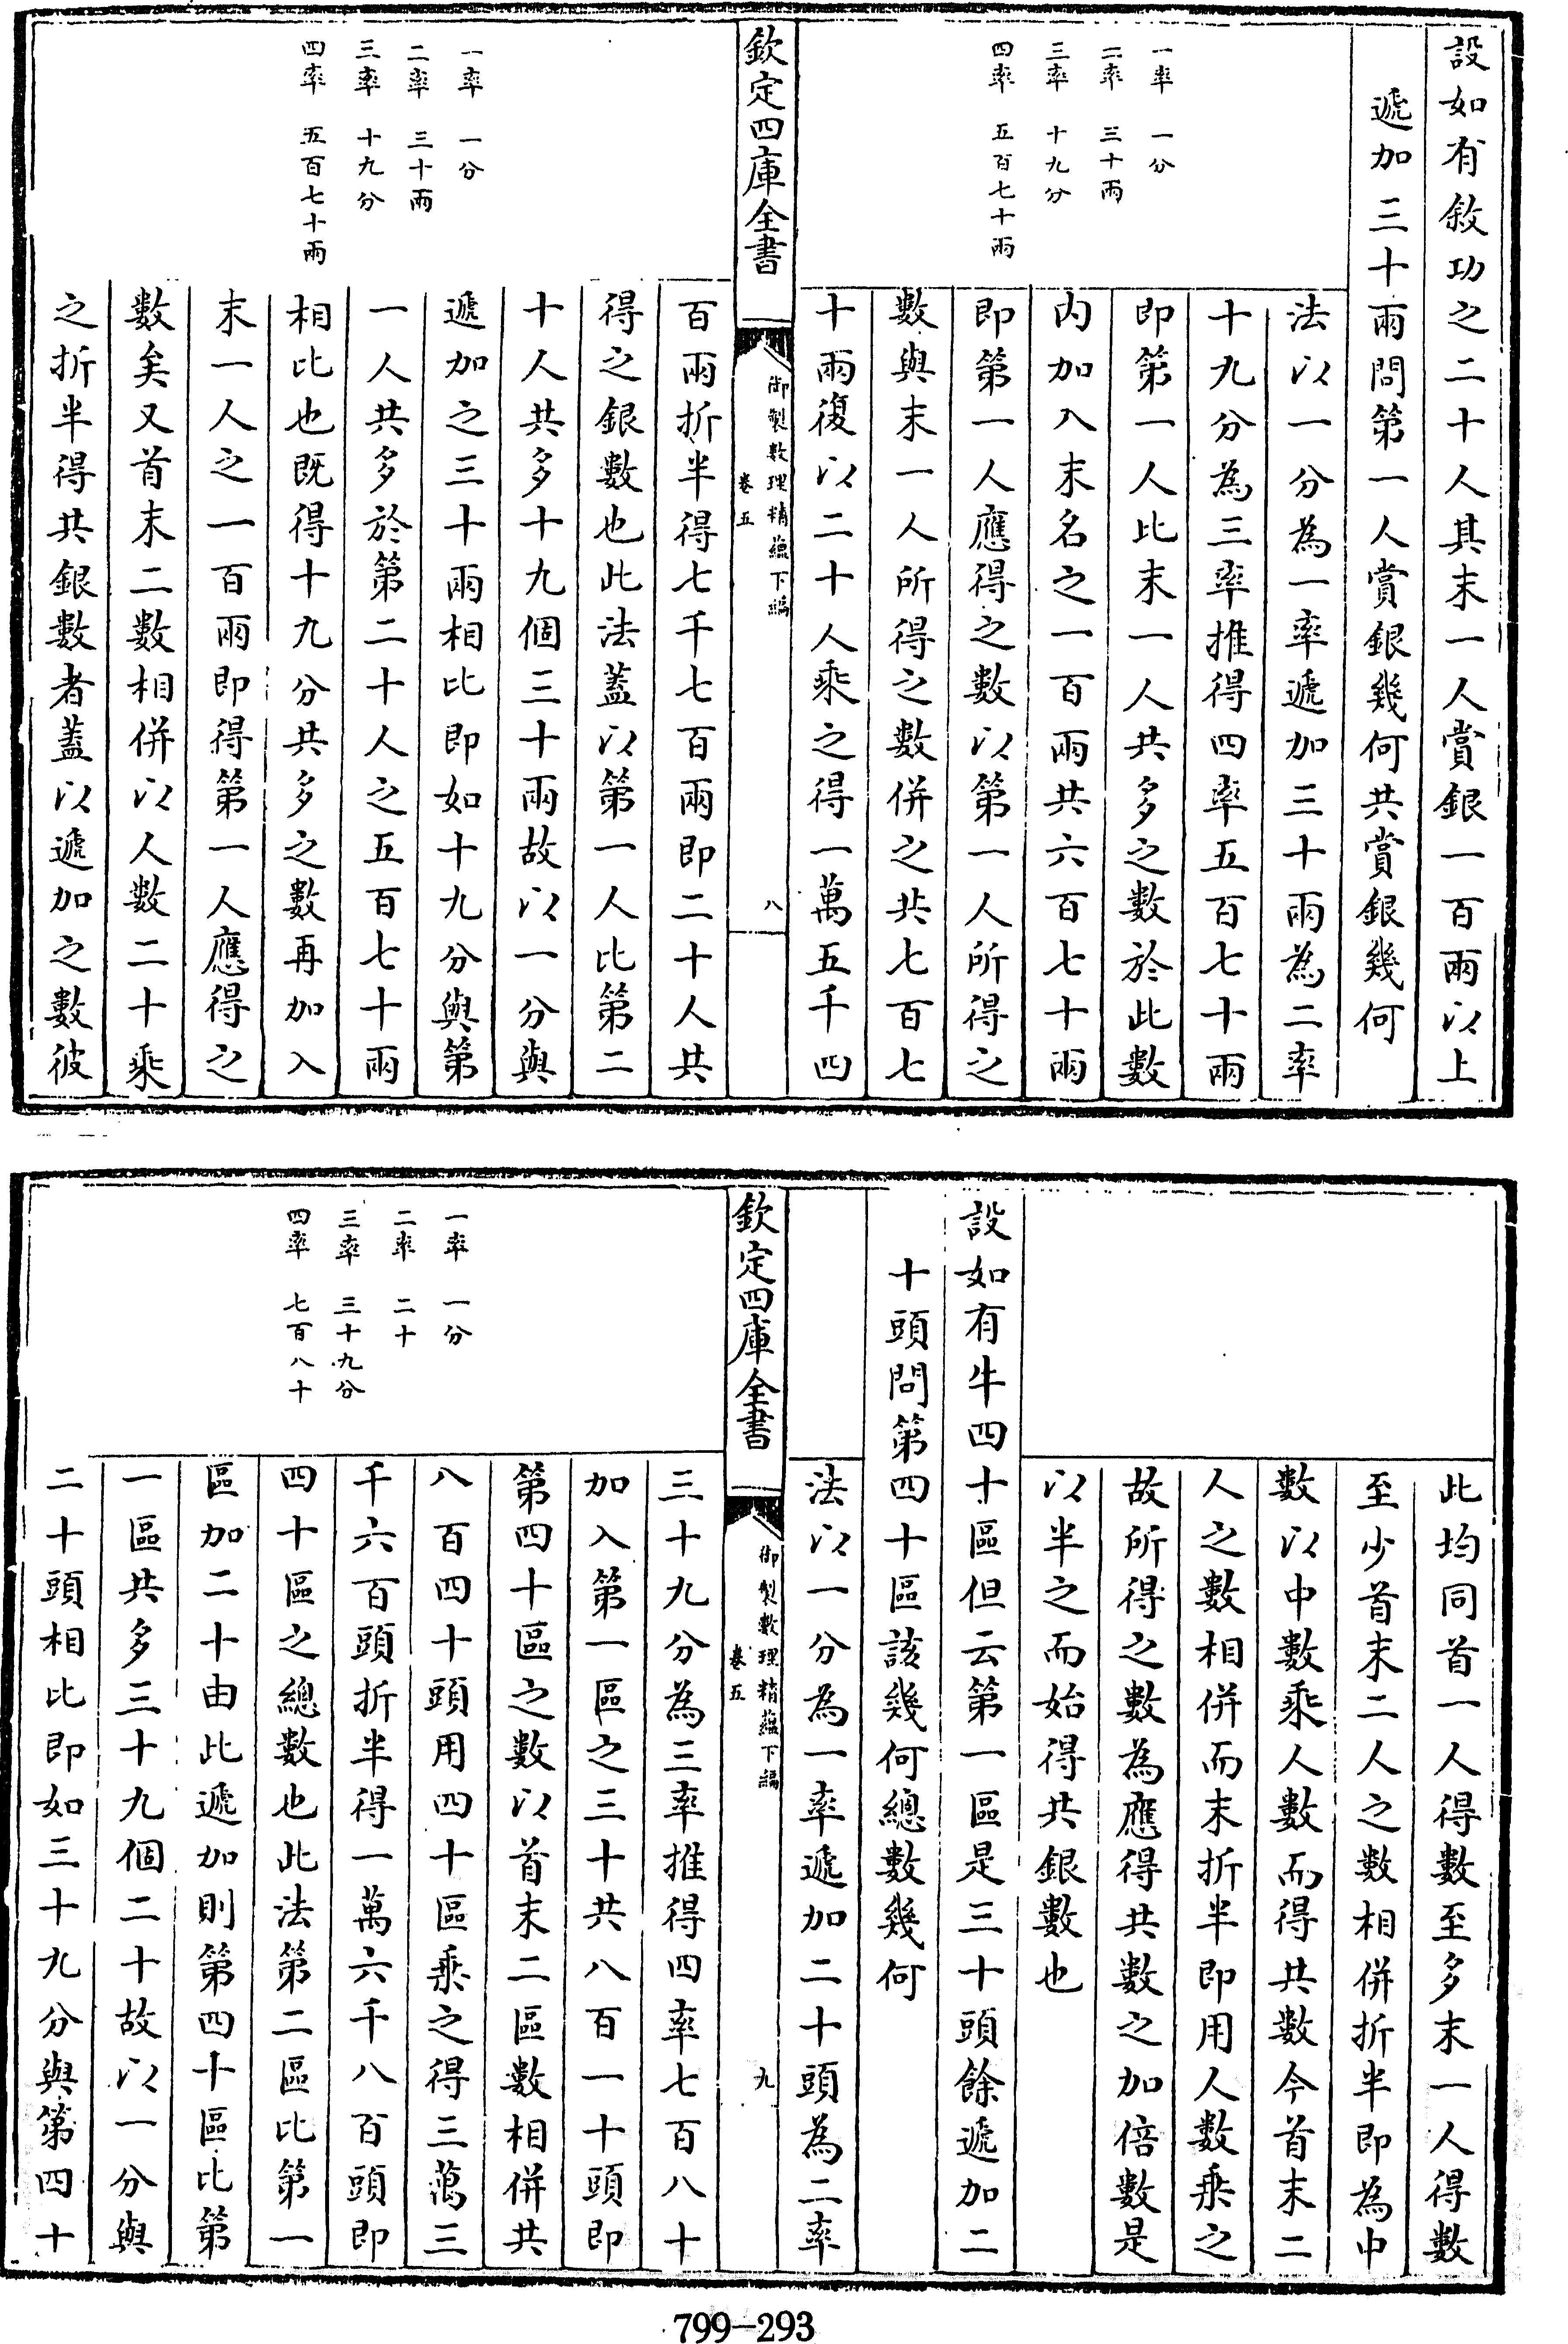 設如有敘功之二十人其末一人賞銀一百兩以上
遞加三十兩問第一人賞銀幾何共賞銀幾何
一率　一分
二率　三十兩
三率　十九分
四率　五百七十兩
法以一分為一率遞加三十兩為二率
十九分為三率推得四率五百七十兩
即第一人比末一人共多之數於此數
內加入末名之一百兩共六百七十兩
即第一人應得之數以第一人所得之
數與末一人所得之數併之共七百七
十兩復以二十人乘之得一萬五千四
欽定四庫全書
御製數理精蘊下編
卷五
八
一率　一分
二率　三十兩
三率　十九分
四率　五百七十兩
百兩折半得七千七百兩即二十人共
得之銀數也此法蓋以第一人比第二
十人共多十九個三十兩故以一分與
遞加之三十兩相比即如十九分與第
一人共多於第二十人之五百七十兩
相比也既得十九分共多之數再加入
末一人之一百兩即得第一人應得之
數矣又首末二數相併以人數二十乘
之折半得共銀數者蓋以遞加之數彼
此均同首一人得數至多末一人得數
至少首末二人之數相併折半即為中
數以中數乘人數而得共數今首末二
人之數相併而末折半即用人數乘之
故所得之數為應得共數之加倍數是
以半之而始得共銀數也
設如有牛四十區但云第一區是三十頭餘遞加二
十頭問第四十區該幾何總數幾何
法以一分為一率遞加二十頭為二率
欽定四庫全書
御製數理精蘊下編
卷五
九
一率　一分
二率　二十
三率　三十九分
四率　七百八十
三十九分為三率推得四率七百八十
加入第一區之三十共八百一十頭即
第四十區之數以首末二區數相併共
八百四十頭用四十區乘之得三萬三
千六百頭折半得一萬六千八百頭即
四十區之總數也此法第二區比第一
區加二十由此遞加則第四十區比第
一區共多三十九個二十故以一分與
二十頭相比即如三十九分與第四十
799-293